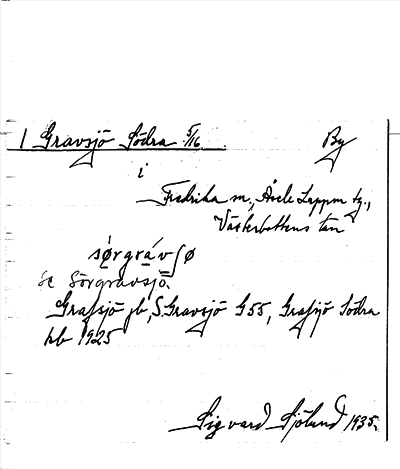 1 Gravsjö Södra 5/16. By
i
Fredrika sn., Åsele Lappm tg.,
Västerbottens län
sørgrávʃø
se Sörgravsjö.
Grafsjö jb, S. Gravsjö G55, Grafsjö Södra
hb 1925
Sigvard Sjölund 1935.